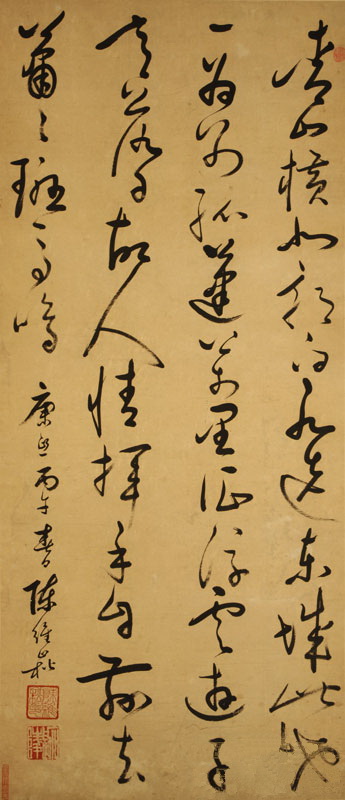 青山橫北郭白水遶東城此地
一為別孤蓬萬里征浮雲遊子
意落日故人情揮手自茲去
蕭々班馬鳴 康熙丙午春 陳維崧